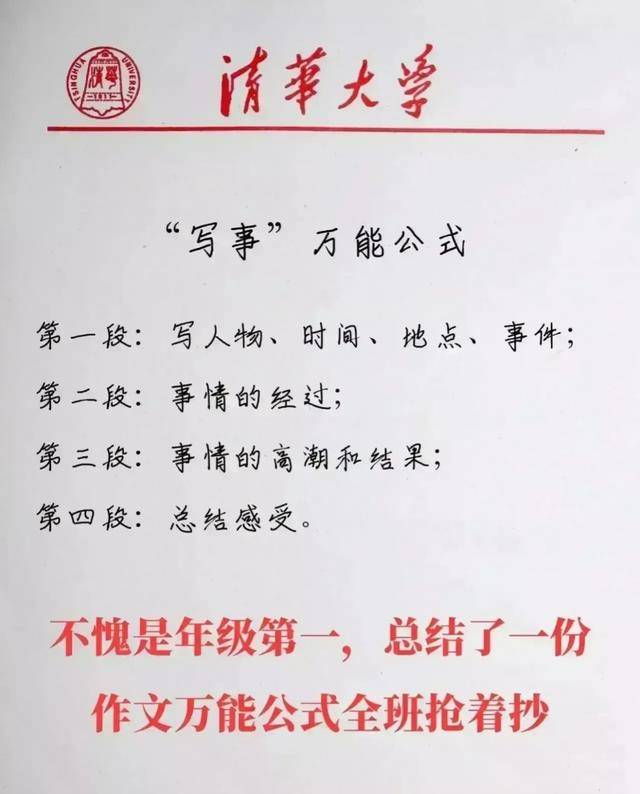 TSINGHUA UNIVERSITY
清華
1911
清華大学
“写事”万能公式
第一段：写人物、时间、地点、事件；
第二段：事情的经过；
第三段：事情的高潮和结果；
第四段：总结感受。
不愧是年级第一，总结了一份
作文万能公式全班抢着抄